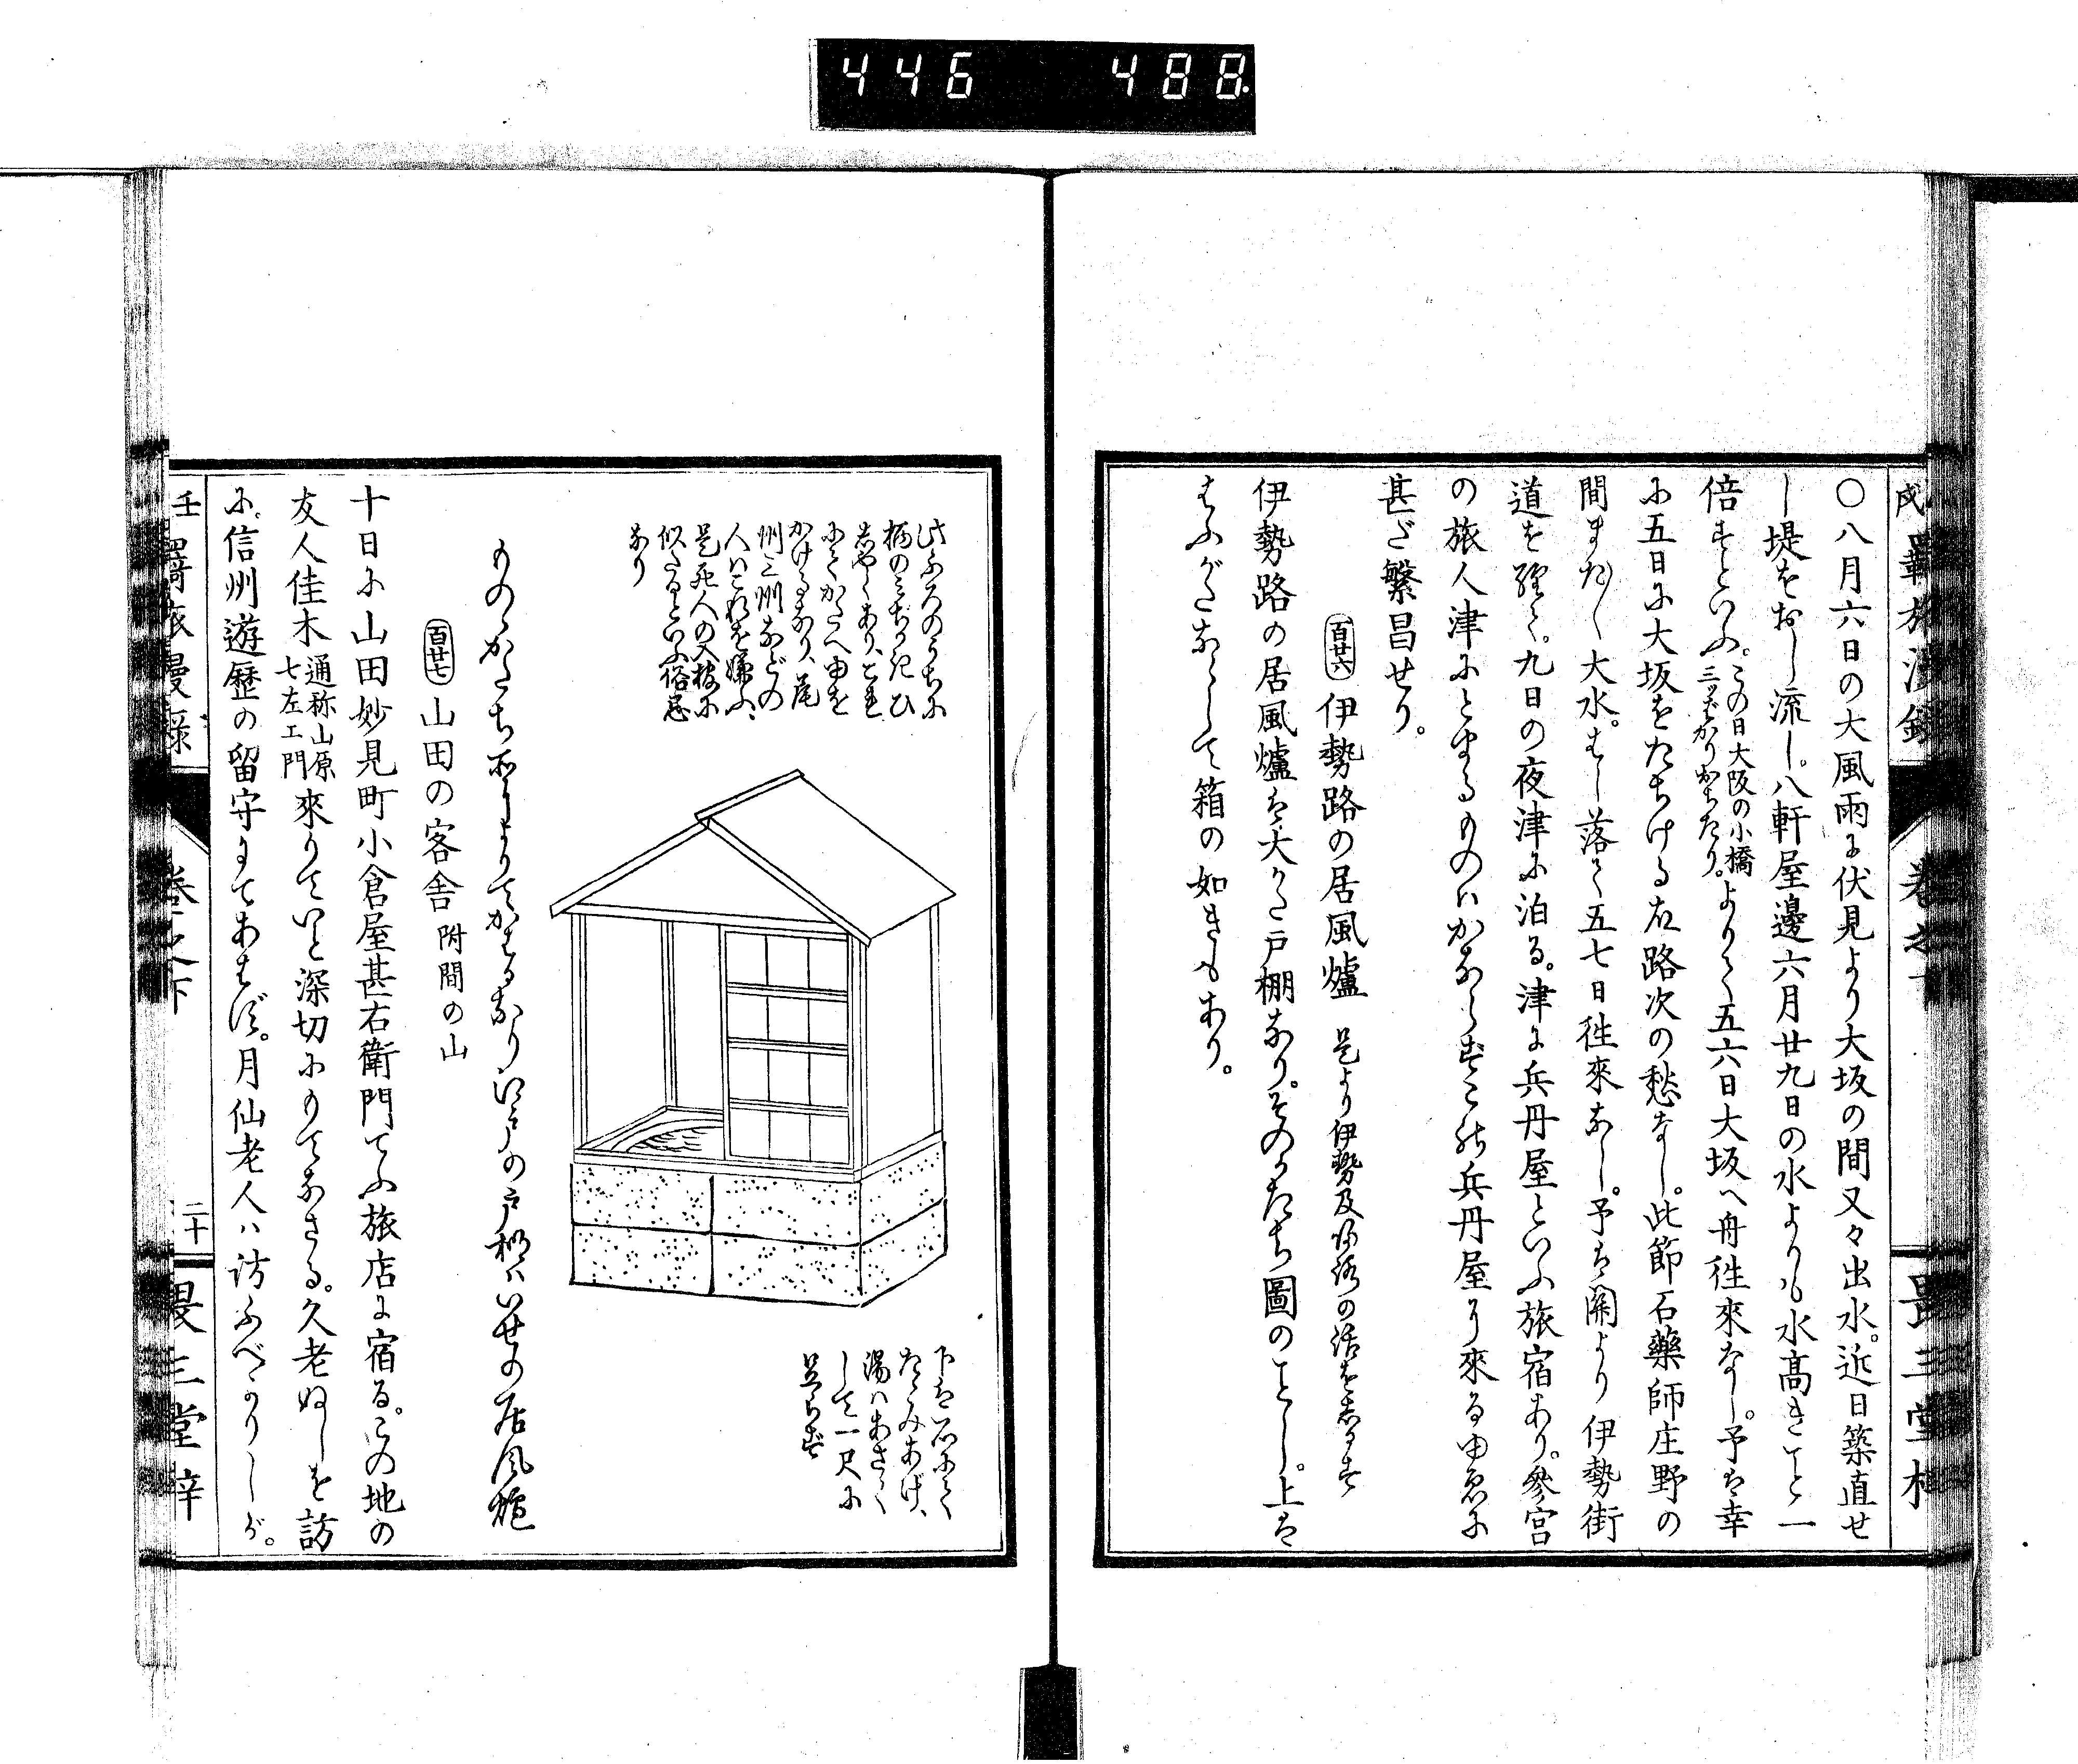 446 488
〇八月六日の大風雨に伏見より大坂の間又々出水。近日築直せ
し堤をおし流し。八軒屋邊六月廿九日の水よりも水高きこと一
倍せしといふ。この日大阪の小橋三ツばかりおちたり。よりて五六日大坂へ舟徃來なし。予は幸
に五日に大坂をたちける故路次の愁なし。此節石藥師庄野の
間また〱大水。はし落て五七日徃來なし。予は關より伊勢街
道を經て。九日の夜津に泊る。津に兵丹屋といふ旅宿あり。參宮
の旅人津にとまるものハかならずこの兵丹屋に來る由ゑに
甚だ繁昌せり。
百廿六 伊勢路の居風爐 是より伊勢及歸路の話をしるす
伊勢路の居風爐は大かた戸棚なり。そのかたち圖のことし。上は
はふがたなくして箱の如きもあり。
此ふろのうちに
柄のみぢかきひ
しやくあり、これ
にてかたへ由を
かけるなり、尾
州三州などの
人ハこれを嫌ふ、
是死人の入棺に
似たるといふ俗忌
なり
下は石にて
たゝみあげ、
湯ハあさく
して一尺に
足らず
ものゝかたち所によりてかはるなり江戸の戸棚ハいせの居風爐
百廿七 山田の客舎 附間の山
十日に山田妙見町小倉屋甚右衛門てふ旅店に宿る。この地の
友人佳木通称山原七左エ門來りていと深切にもてなさる。久老ぬしを訪
に。信州遊歴の留守にてあはず。月仙老人ハ訪ふべかりしが。
卷之下
二十
畏三堂梓